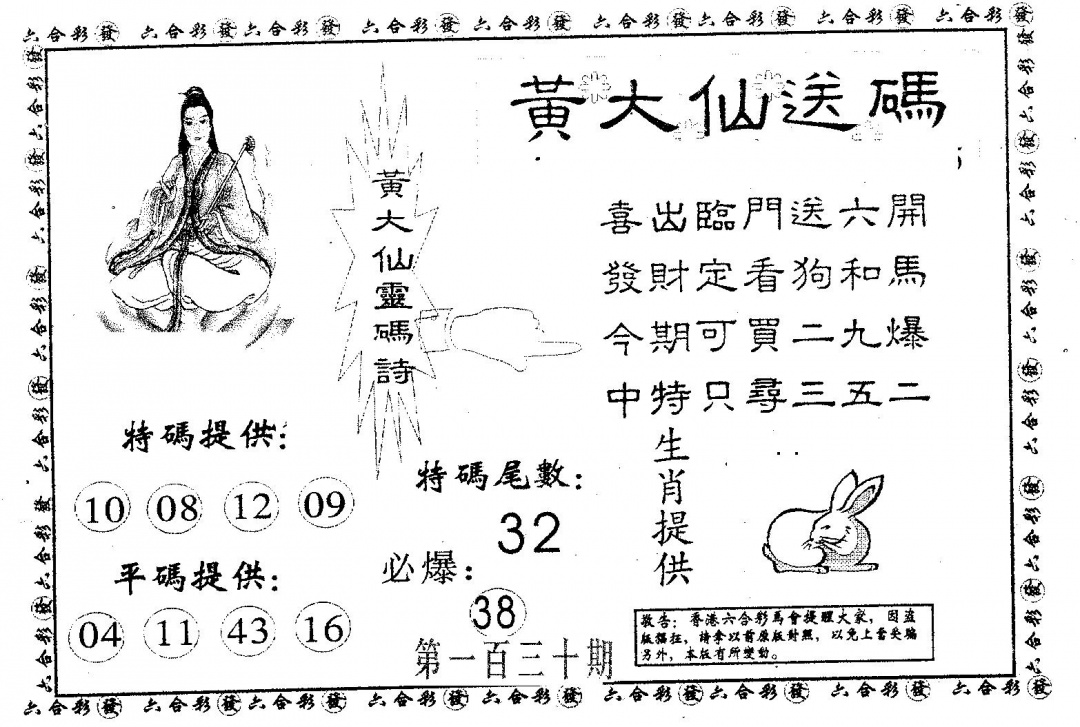 六合彩發 六合彩發 六合彩發 六合彩發 六合彩發 六合彩發 六合彩發 六合彩發 六合彩發
黃大仙送碼
黃大仙靈碼詩
喜出臨門送六開
發財定看狗和馬
今期可買二九爆
中特只尋三五二
特碼提供:
10 08 12 09
平碼提供:
04 11 43 16
特碼尾數:
32
必爆:
38
第一百三十期
生肖提供
敬告:香港六合彩馬會提醒大家,因盜
版猖狂,請拿以前原版對照,以免上當受騙
另外,本版有所變動。
六合彩發 六合彩發 六合彩發 六合彩發 六合彩發 六合彩發 六合彩發 六合彩發 六合彩發